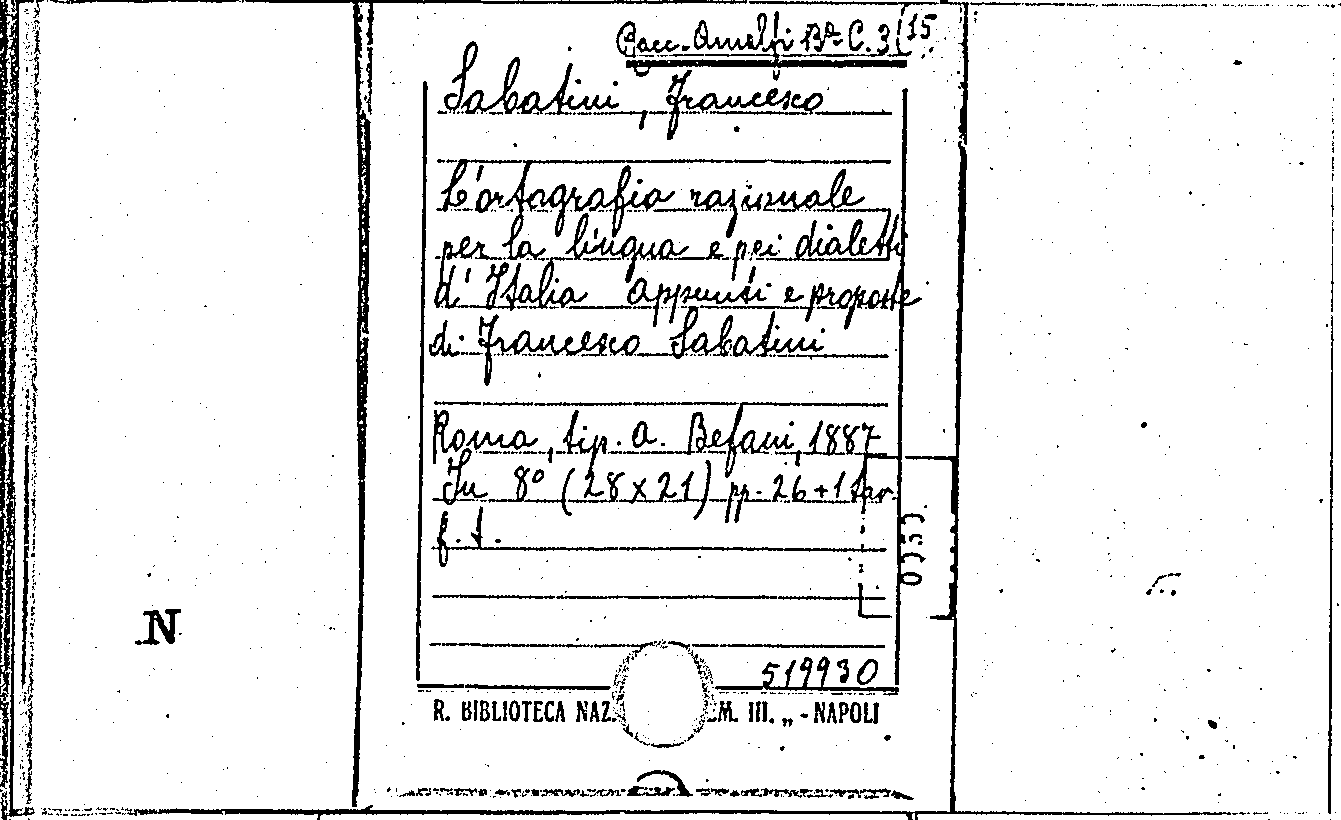 Racc. Amalfi Bª C. 3(15
Sabatini, Francesco
L'ortografia razionale
per la lingua e pei dialetti
d'Italia appunti e proposte
di Francesco Sabatini
Roma, tip. A. Befani, 1887
In 8º (28 x 21) pp. 26 + 1 tav.
f. t.
N
519930
R. BIBLIOTECA NAZ. EM. III. „ - NAPOLI